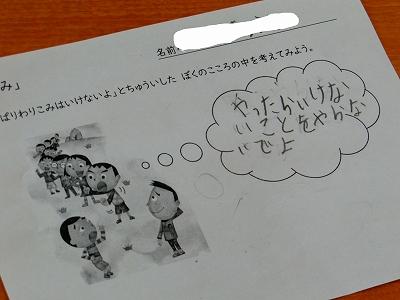 み」
名前
ぱりわりこみはいけないよ」とちゅういした ぼくのこころの中を考えてみよう。
やったらいけな
いことをやらな
いでよ